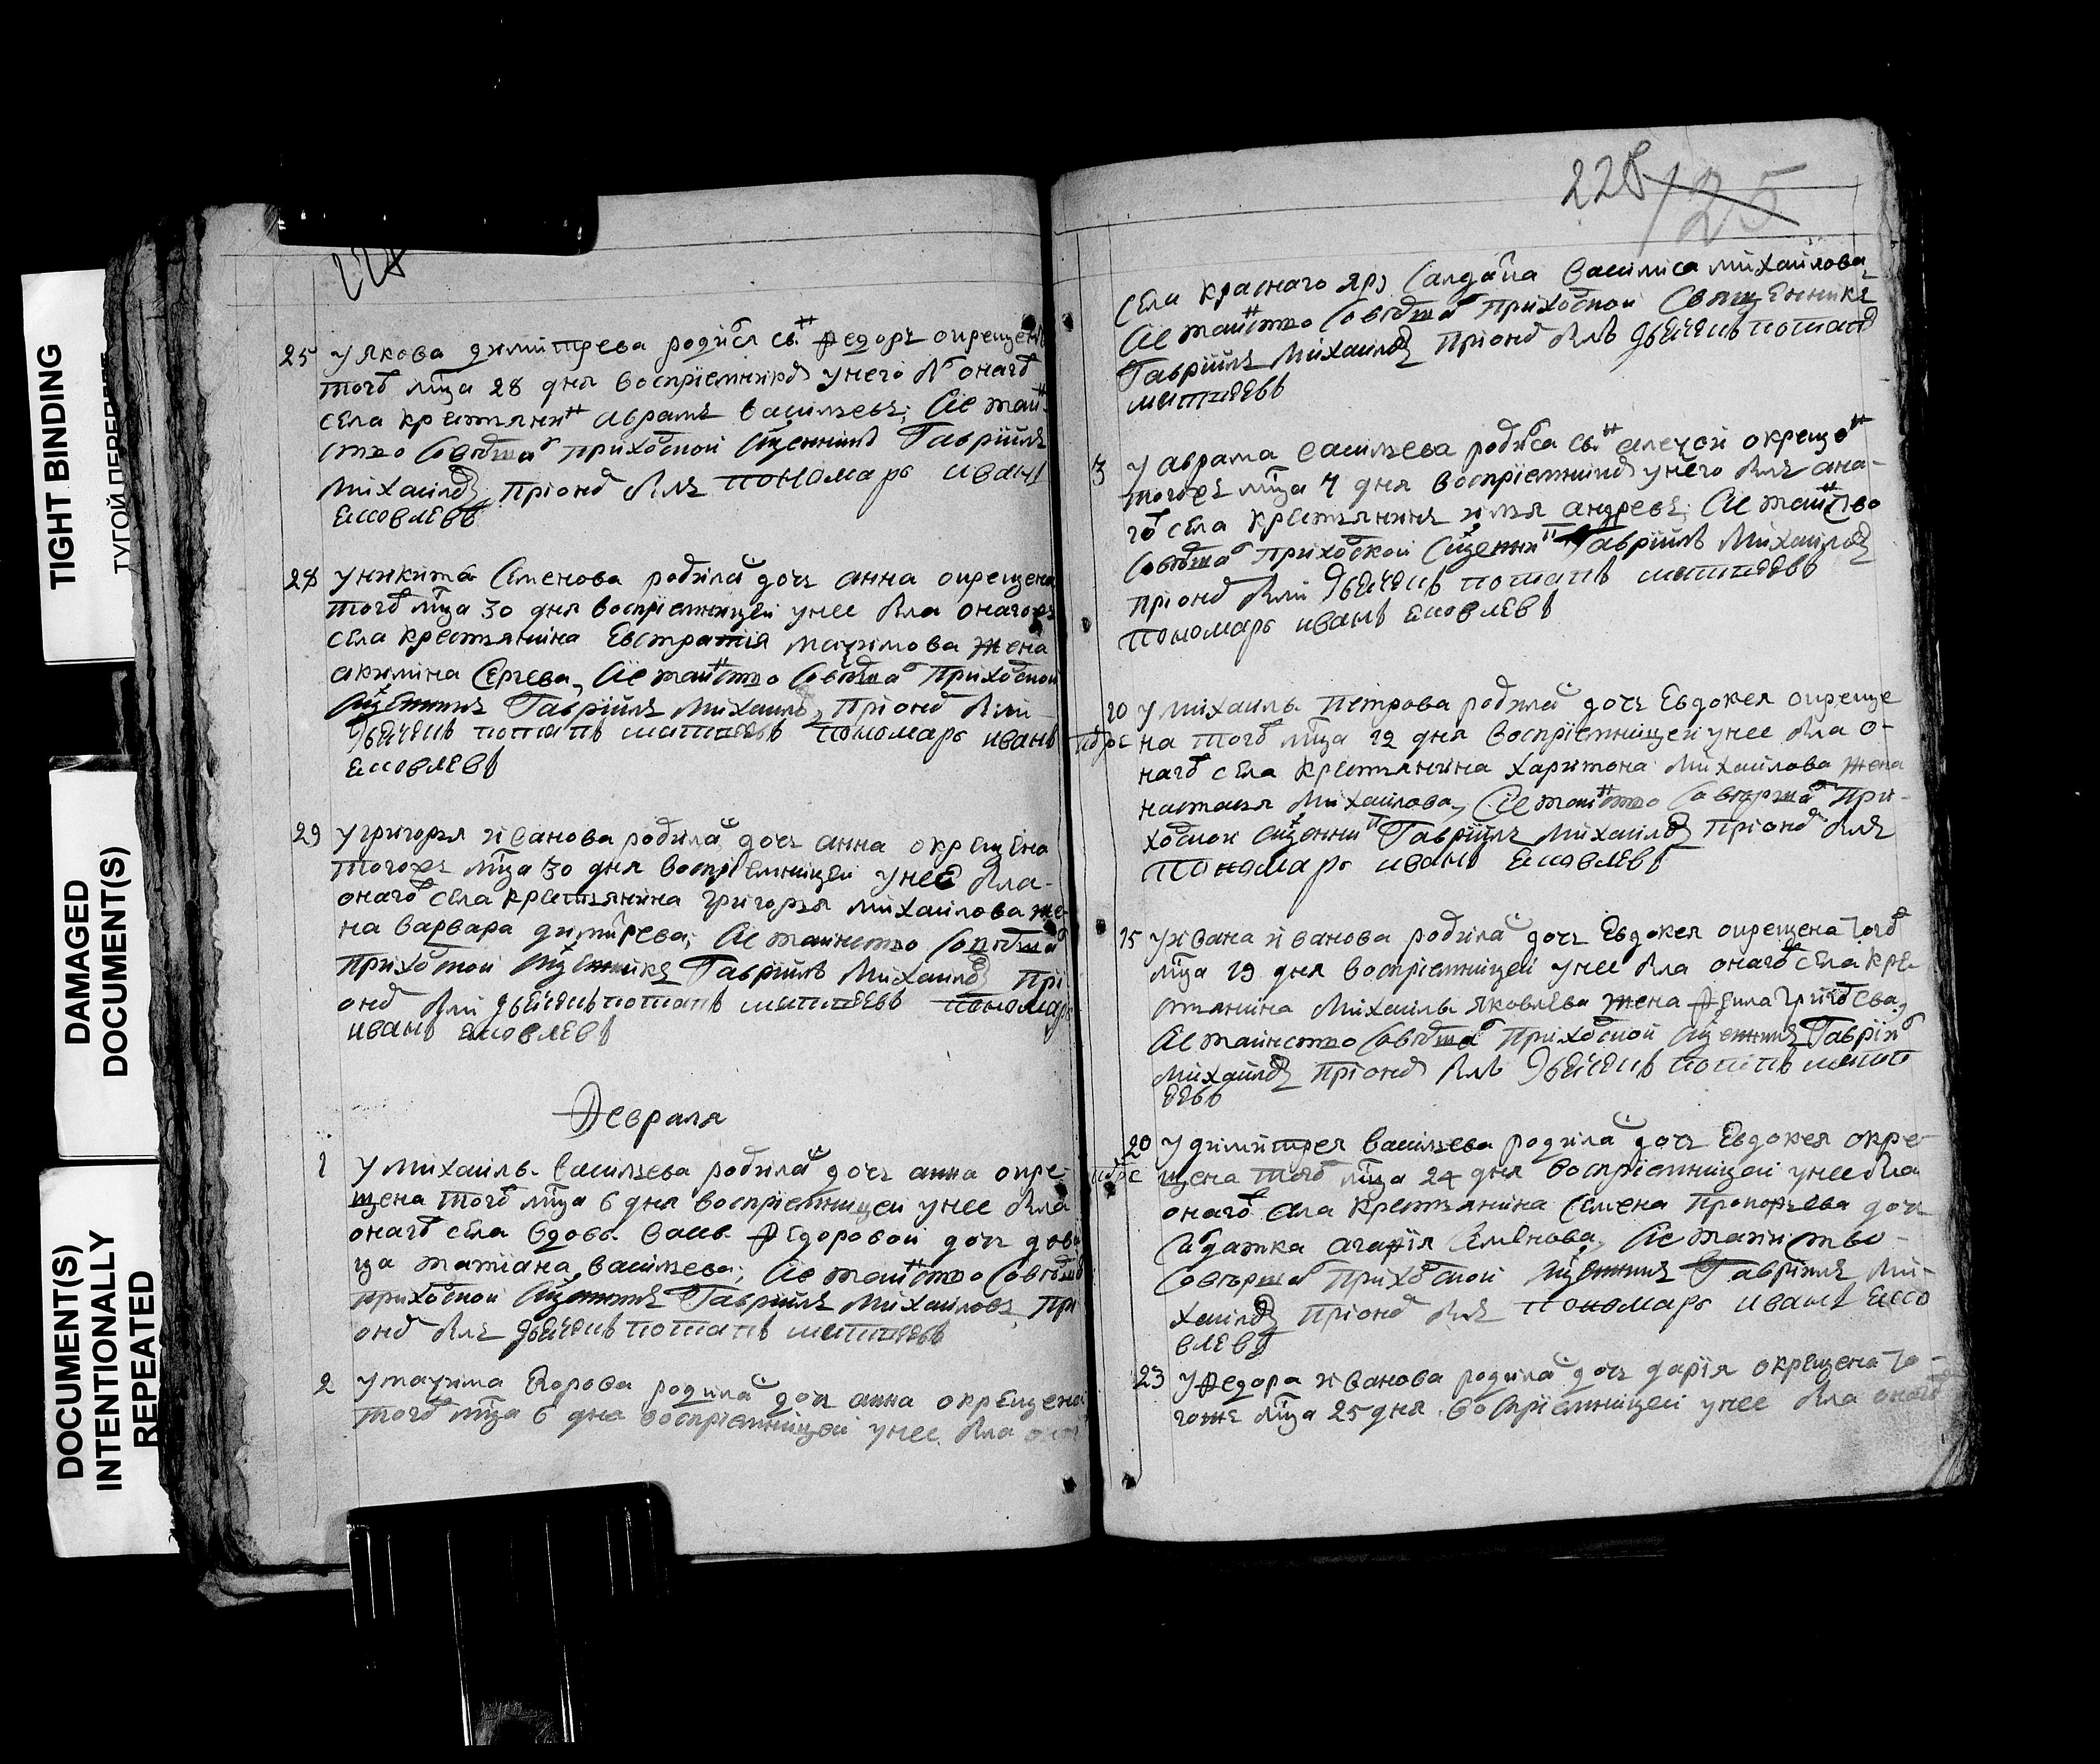 TIGHT BINDING
ТУГОЙ ПЕРЕПЛЕТ
DAMAGED
DOCUMENT(S)
DOCUMENT(S)
INTENTIONALLY
REPEATED
25 У Якова димитрева родися сн федоръ окрещенъ
того мца 28 дня воспрiемникъ унего былъ онаго
села крестьянин Аврамъ васильевъ; Сие таин
ство совершалъ приходской сщенникъ Гаврiилъ
Михаиловъ приономъ былъ пономарь иванъ
Яковлевъ
28 У никиты Семенова родилас дочь анна окрещена
того мца 30 дня воспрiемницей унее была онагожъ
села крестьянина Евстратия максимова жена
акилина Сергева, Сие таинство совершалъ приходской
сщенникъ Гаврiилъ Михаиловъ, приономъ были
дьячекъ потапъ матвеевъ пономарь иванъ
Яковлевъ
29 У григорья иванова родилас дочь анна окрещена
тогожъ мца 30 дня воспрiемницей унее была
онаго села крестьянина григорья михаилова же
на варвара димитрева; Сие таинство совершалъ
приходской сщенникъ Гаврiилъ Михаиловъ при
ономъ были дьячекъ потапъ матвеевъ пономарь
иванъ Яковлевъ
Февраля
1 У михаилы васильева родилас дочь анна окре
щена того мца 6 дня воспрiемницей унее была
онаго села вдовы васы федоровой дочь деви
ца татiана васильева; Сие таинство совершалъ
приходской сщенникъ Гаврiилъ Михаиловъ при
ономъ былъ дьячекъ потапъ матвеевъ
2 У максима Егорова родилас дочь анна окрещена
того мца 6 дня воспрiемницей унее была онаго
228 125
села краснаго яру салдата василиса михаилова
Сие таинство совершалъ приходской Священникъ
Гаврiилъ Михаиловъ приономъ былъ дьячекъ потапъ
матвеевъ
3 У аврама васильева родися сн алексей окрещен
тогожъ мца 7 дня воспрiемникъ унего былъ она-
го села крестьянинъ илья андревъ; Сие таинство
совершалъ приходской сщенникъ Гаврiилъ Михаиловъ
приономъ были дьячекъ потапъ матвеевъ
пономарь иванъ Яковлевъ
10 У михаилы петрова родилас дочь Евдокея окреще
на того мца 12 дня воспрiемницей унее была о-
наго села крестьянина харитона михаилова жена
настасья михаилова, Сие таинство совершалъ при-
ходской сщенникъ Гаврiилъ Михаиловъ приономъ былъ
пономарь иванъ Яковлевъ
15 У ивана иванова родилас дочь Евдокея окрещена того
мца 19 дня воспрiемницей унее была онаго села кре-
стянина михаилы яковлева жена фекла григорева,
Сие таинство совершалъ приходской сщенникъ Гаврiил
Михаиловъ приономъ былъ дьячекъ потапъ матв
еевъ
20 У димитрея васильева родилас дочь Евдокея окре-
щена того мца 24 дня воспрiемницей унее была
онаго села крестьянина семена прокофьева дочь
агафiя семенова, Сие таинство-
совершалъ приходской сщенникъ Гаврiилъ Ми-
хаиловъ приономъ былъ пономарь иванъ Яко
влевъ
23 У федора иванова родилас дочь дарiя окрещена то-
гоже мца 25 дня воспрiемницей унее была онаго